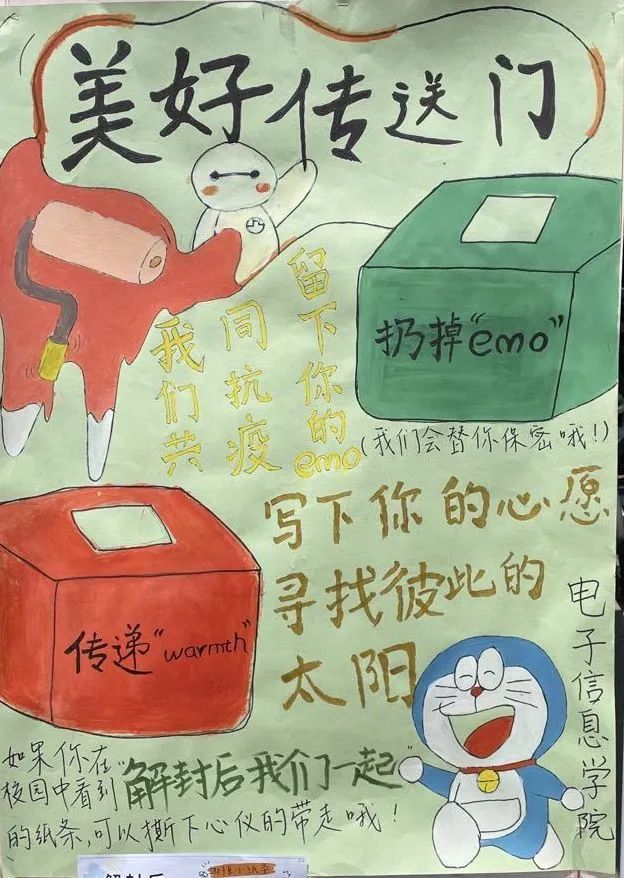 美好传送门
留下你的emo
同抗疫
我们共
扔掉"emo"
(我们会替你保密哦!)
写下你的心愿
寻找彼此的
太阳
传递"warmth"
电子信息学院
如果你在
校园中看到"解封后我们一起"
的纸条,可以撕下心仪的带走哦!